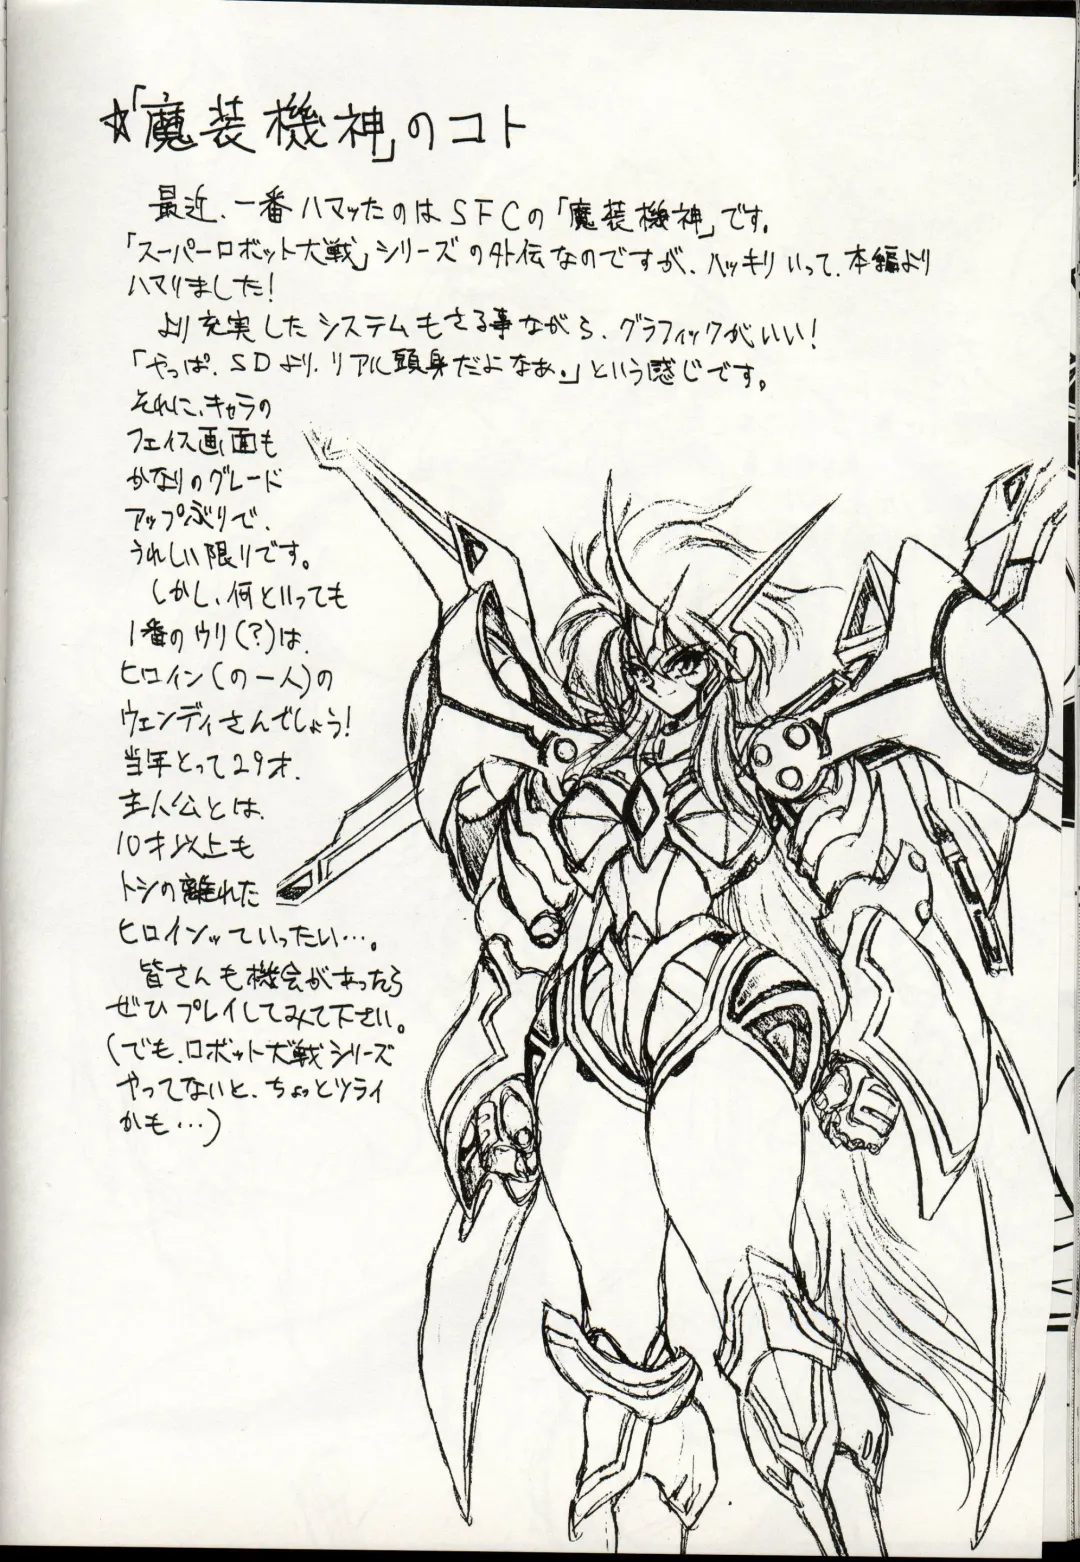 ☆「魔装機神」のコト
最近、一番ハマッたのはSFCの「魔装機神」です。
「スーパーロボット大戦」シリーズの外伝なのですが、ハッキリいって、本編より
ハマりました!
より充実したシステムもさる事ながら、グラフィックがいい!
「やっぱ、SDより、リアル頭身だよなあ。」という感じです。
それに、キャラの
フェイス画面も
かなりのグレード
アップぶりで、
うれしい限りです。
しかし、何といっても
1番のウリ(?)は、
ヒロイン(の一人)の
ウェンディさんでしょう!
当年とって29才、
主人公とは、
10才以上も
トシの離れた
ヒロインッていったい…。
皆さんも機会があったら
ぜひプレイしてみて下さい。
(でも、ロボット大戦シリーズ
やってないと、ちょっとツライ
かも…)